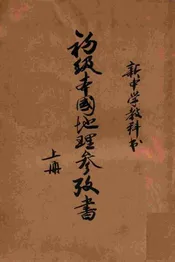 新中学教科书
初级本國地理参攷書
上册